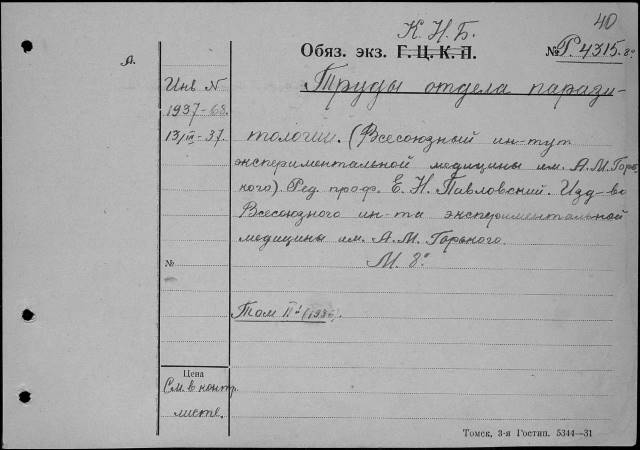 40
К. Н. Б.
Обяз. экз. Г. Ц. К. П. № Р. 4315. 8°
А.
Инв N
1937-68.
13/III-37.
Труды отдела парази-
тологии. (Всесоюзный ин-тут
экспериментальной медицины им. А. М. Горь-
кого). Ред. проф. Е. Н. Павловский. Изд-во
Всесоюзного ин-та экспериментальной
медицины им. А. М. Горького.
№
М. 8°
Том II
Цена
См. в контр.
листе.
Томск, 3-я Гостип. 5344—31